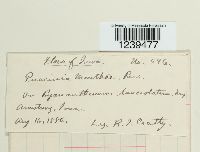 1239477
Flora of Iowa. No. 496.
Puccinia Menthae Pers.
On Pycnanthemum lanceolatum,
Armstrong, Iowa.
Aug 16, 1886. Leg. R. I. Cratty.